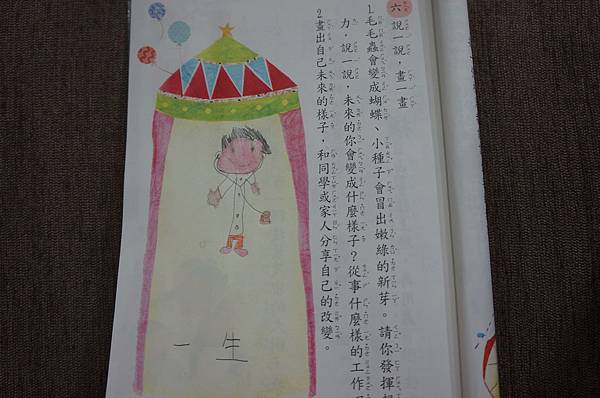 六 說一說，畫一畫
1.毛毛蟲會變成蝴蝶、小種子會冒出嫩綠的新芽。請你發揮想
力，說一說，未來的你會變成什麼樣子？從事什麼樣的工作
2.畫出自己未來的樣子，和同學或家人分享自己的改變。
一生